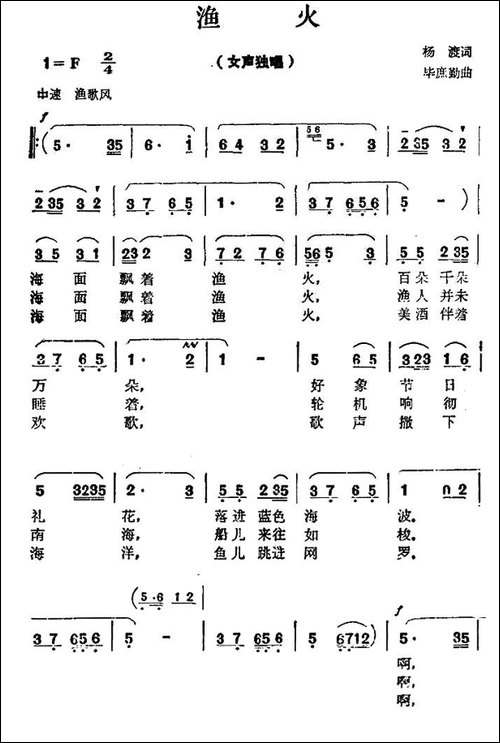 渔 火
1=F 2/4 （女声独唱） 杨 渡词
毕庶勤曲
中速 渔歌风
f
5· 35 | 6· i | 64 32 | 56 5· 3 | 235 32 |
235 32 | 37 65 | 1· 2 | 37 656 | 5 -) |
35 31 | 232 3 | 72 76 | 565 3 | 55 235 |
海 面 飘着 渔 火, 百朵 千朵
海 面 飘着 渔 火, 渔人 并未
海 面 飘着 渔 火, 美酒 伴着
37 65 | 1· 2 | 1 - | 5 65 | 323 16 |
万 朵, 好 象 节 日
睡 着, 轮 机 响 彻
欢 歌, 歌 声 撒 下
5 3235 | 2· 3 | 55 235 | 37 65 | 1 02 |
礼 花, 落进 蓝色 海 波。
南 海, 船儿 来往 如 梭。
海 洋, 鱼儿 跳进 网 罗。
(5·6 12
37 656 | 5 - | 37 656 | 5 6712) | 5· 35 |
f
啊,
啊,
啊,